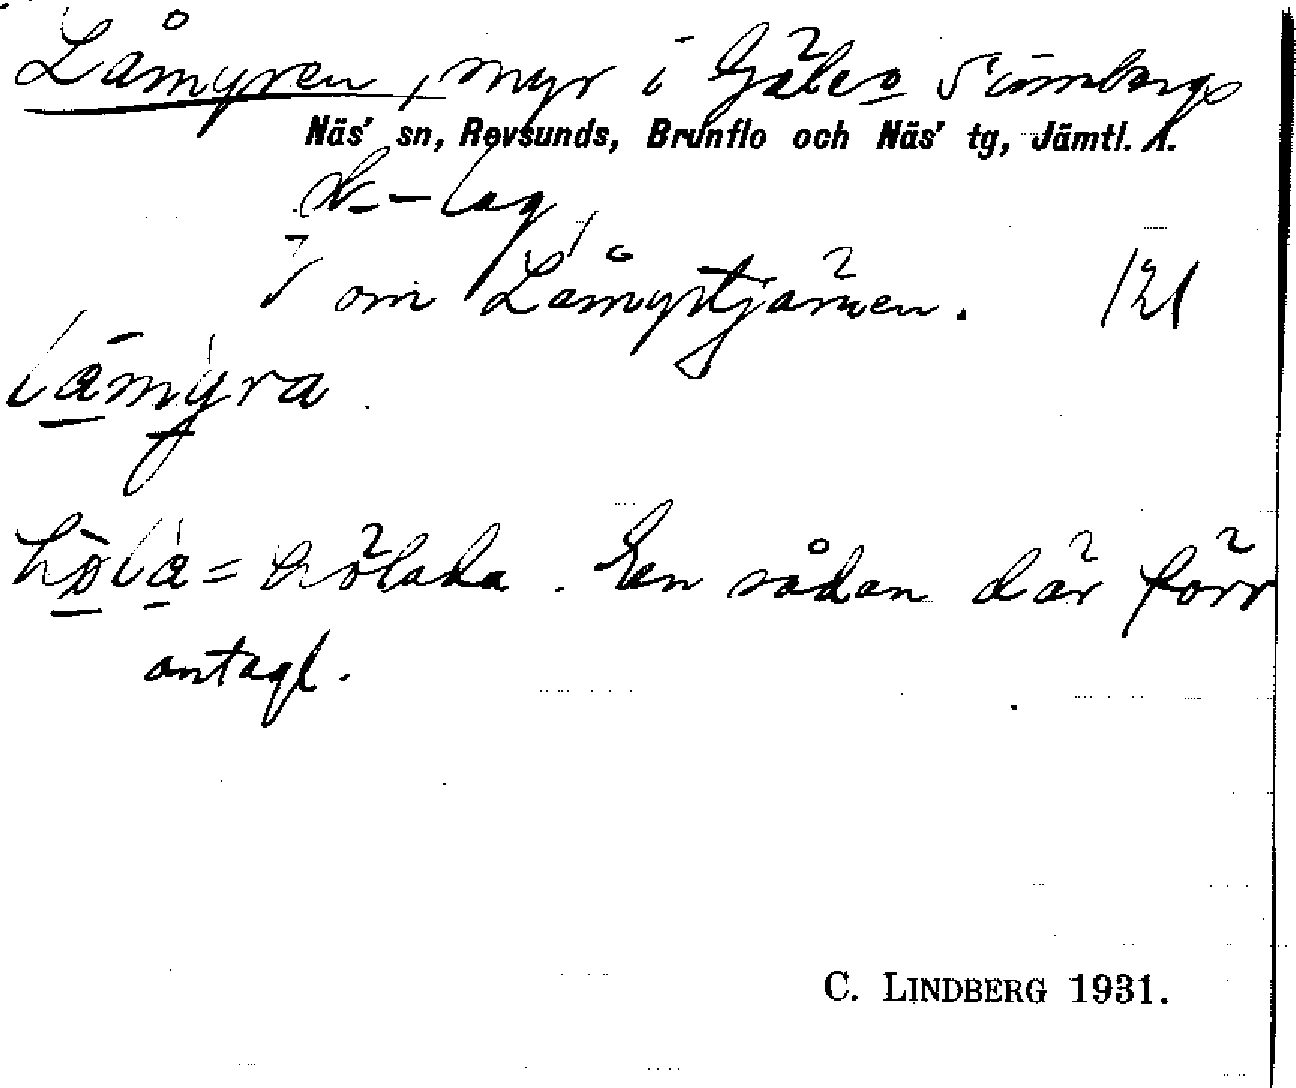 Låmyren, myr i Gåle o Sunnbergs
Näs' sn, Revsunds, Brunflo och Näs' tg, Jämtl. l.
sk-lag
V om Låmyrtjärnen. 121
lamyra
höla = hölada. En sådan där förr
antagl.
C. LINDBERG 1931.